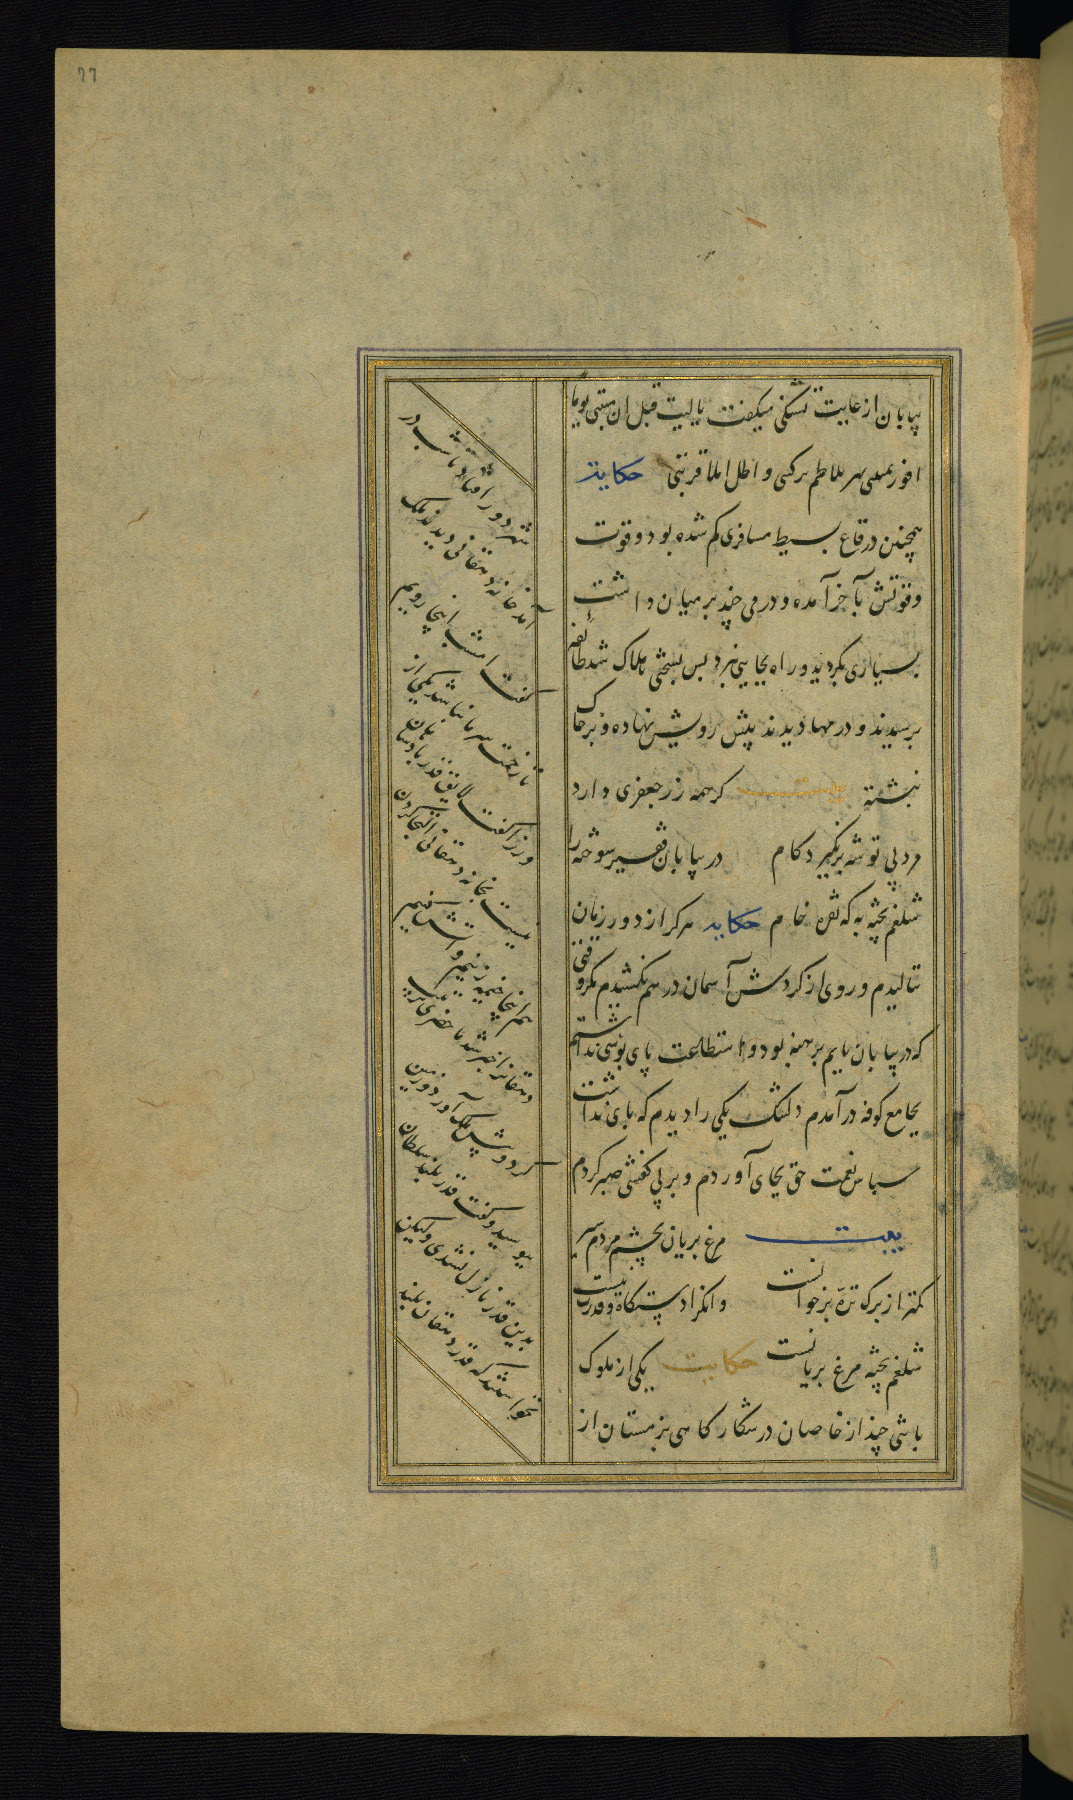 ٦٦
بیابان از غایت تشنکی میکفت یا لیت قبل ان منیتی یوما
افوز بمنیتی نهر تلاطم رکبتی و اظل املا قربتی حکایة
همچنین در قاع بسیط مسافری کم شده بود و قوت
و قوتش بآخر آمده و درمی چند بر میان داشت
بسیاری بکردید و راه بجایی نبرد بس بسختی هلاک شد طائفه
برسیدند و درمها دیدند پیش رویش نهاده و بر خاک
نبشته کر همه زر جعفری دارد
مرد بی توشه برنکیرد کام در بیابان فقیر سوخته را
شلغم پخته به که نقره خام حکایه هرکز از دور زمان
ننالیدم و روی از کردش آسمان در هم نکشیدم مکر وقتی
که در بیابان پایم برهنه بود و استطاعت پای پوشی نداشتم
بجامع کوفه در آمدم دلتنک یکی را دیدم که پای نداشت
سپاس نعمت حق بجای آوردم و بر بی کفشی صبر کردم
بیت مرغ بریان بچشم مردم سیر
کمتر از برک تره بر خوانست و انکرا دستکاه و قدرت نیست
شلغم پخته مرغ بریانست حکایت یکی از ملوک
با تنی چند از خاصان در شکار کاهی بزمستان از
شهر دور افتاد تا شب در
آمد خانه دهقانی دیدند ملک
کفت امشب آنجا رویم
تا زحمت سرما نباشد یکی از
وزرا کفت لایق قدر پادشاهان
نیست بخانه دهقانی التجا کردن
هم اینجا خیمه زنیم و آتش کنیم
دهقانرا خبر شد ما حضری ترتیب
کرد و پیش ملک آورد و زمین
ببوسید و کفت قدر بلند سلطان
بدین قدر نازل نشدی ولیکن
نخواستند که قدر دهقان بلند